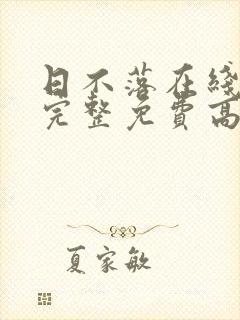 日不落在线
完整免费高
夏家敏